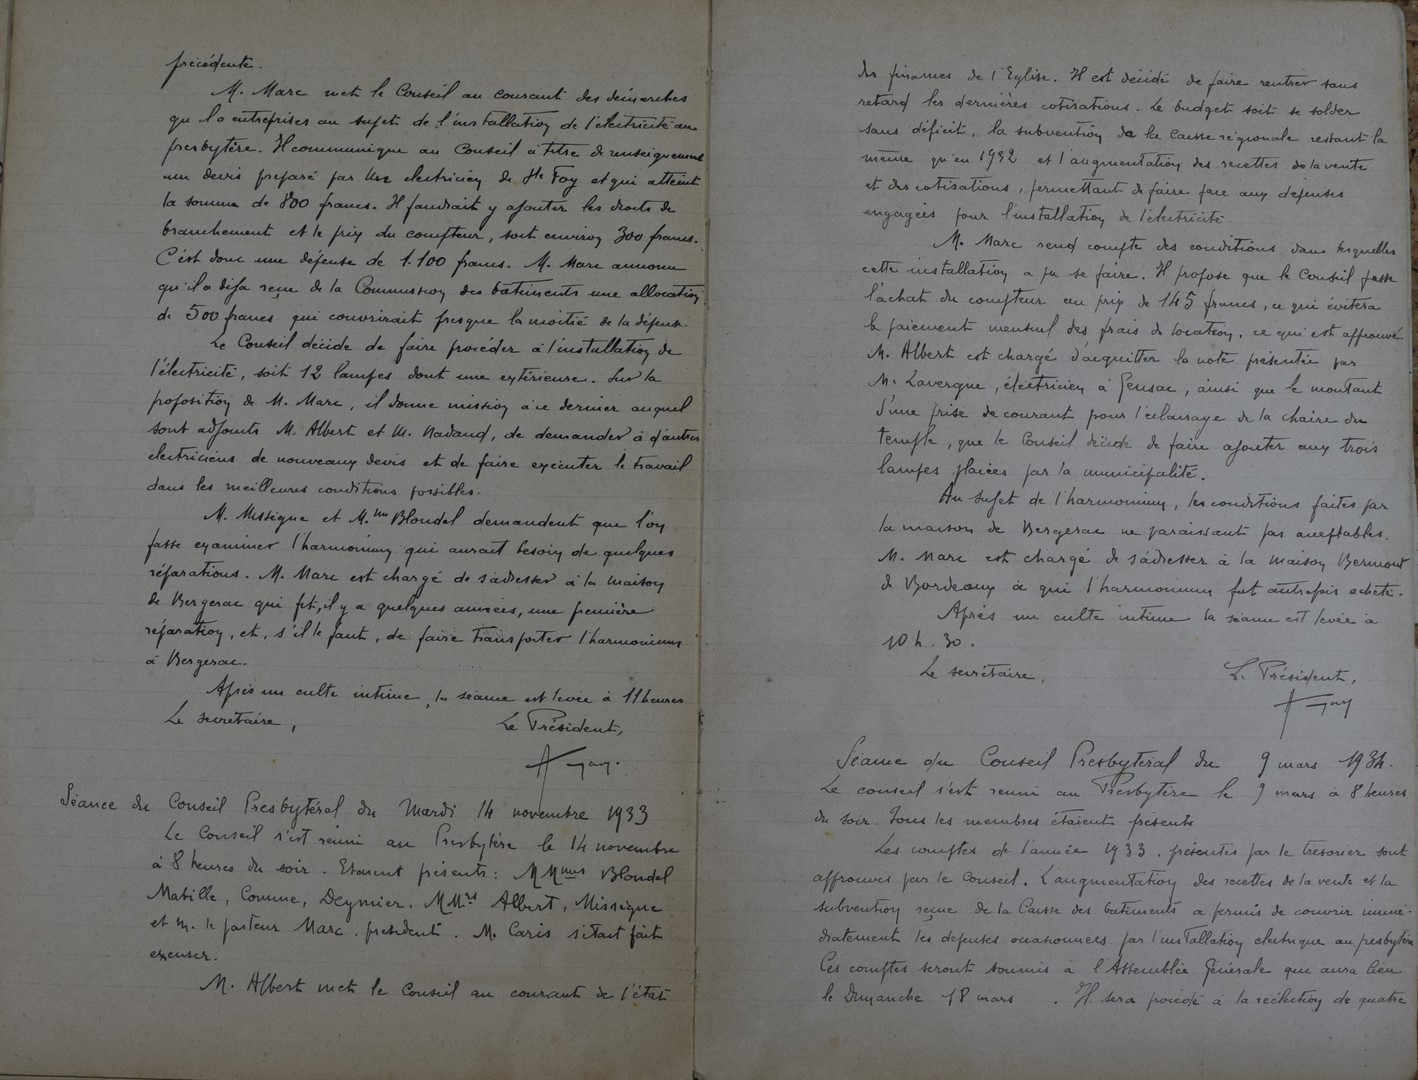 précédente.
M. Marc met le Conseil au courant des démarches
qu'il a entreprises au sujet de l'installation de l'électricité au
presbytère. Il communique au Conseil à titre de renseignement
un devis préparé par un electricien de Ste Foy et qui atteint
la somme de 800 francs. Il faudrait y ajouter les droits de
branchement et le prix du compteur, soit environ 300 francs.
C'est donc une dépense de 1.100 francs. M. Marc annonce
qu'il a déjà reçu de la Commission des bâtiments une allocation
de 500 francs qui couvrirait presque la moitié de la dépense.
Le Conseil décide de faire procéder à l'installation de
l'électricité, soit 12 lampes dont une extérieure. Sur la
proposition de M. Marc, il donne mission à ce dernier auquel
sont adjoints M. Albert et M. Nadaud, de demander à d'autres
electriciens de nouveaux devis et de faire exécuter le travail
dans les meilleures conditions possibles.
M. Missègue et Mme Blondel demandent que l'on
fasse examiner l'harmonium qui aurait besoin de quelques
réparations. M. Marc est chargé de s'adresser à la maison
de Bergerac qui fit, il y a quelques années, une première
réparation, et, s'il le faut, de faire transporter l'harmonium
à Bergerac.
Après un culte intime, la séance est levée à 11 heures
Le secrétaire, Le Président,
Séance du Conseil Presbytéral du Mardi 14 novembre 1933
Le Conseil s'est réuni au Presbytère le 14 novembre
à 8 heures du soir. Etaient présents : MMmes Blondel
Matille, Comme, Deymier. MMrs Albert, Missègue
et M. le pasteur Marc, président. M. Caris s'était fait
excuser.
M. Albert met le Conseil au courant de l'état
des finances de l'Eglise. Il est décidé de faire rentrer sans
retard les dernières cotisations. Le budget doit se solder
sans déficit, la subvention de la Caisse régionale restant la
même qu'en 1932 et l'augmentation des recettes de la vente
et des cotisations, permettant de faire face aux dépenses
engagées pour l'installation de l'électricité.
M. Marc rend compte des conditions dans lesquelles
cette installation a pu se faire. Il propose que le Conseil fasse
l'achat du compteur au prix de 145 francs, ce qui évitera
le paiement mensuel des frais de location, ce qui est approuvé.
M. Albert est chargé d'acquitter la note présentée par
M. Lavergne, électricien à Gensac, ainsi que le montant
d'une prise de courant pour l'éclairage de la chaire du
temple, que le Conseil décide de faire ajouter aux trois
lampes placées par la municipalité.
Au sujet de l'harmonium, les conditions faites par
la maison de Bergerac ne paraissant pas acceptables,
M. Marc est chargé de s'adresser à la maison Bermont
de Bordeaux à qui l'harmonium fut autrefois acheté.
Après un culte intime la séance est levée à
10 h. 30.
Le secrétaire, Le Président,
Séance du Conseil Presbytéral du 9 mars 1934.
Le conseil s'est réuni au Presbytère le 9 mars à 8 heures
du soir. Tous les membres étaient présents
Les comptes de l'année 1933, présentés par le trésorier sont
approuvés par le Conseil. L'augmentation des recettes de la vente et la
subvention reçue de la Caisse des batiments a permis de couvrir immé-
diatement les dépenses occasionnées par l'installation electrique au presbytère
Ces comptes seront soumis à l'Assemblée Générale qui aura lieu
le Dimanche 18 mars . Il sera procédé à la réélection de quatre